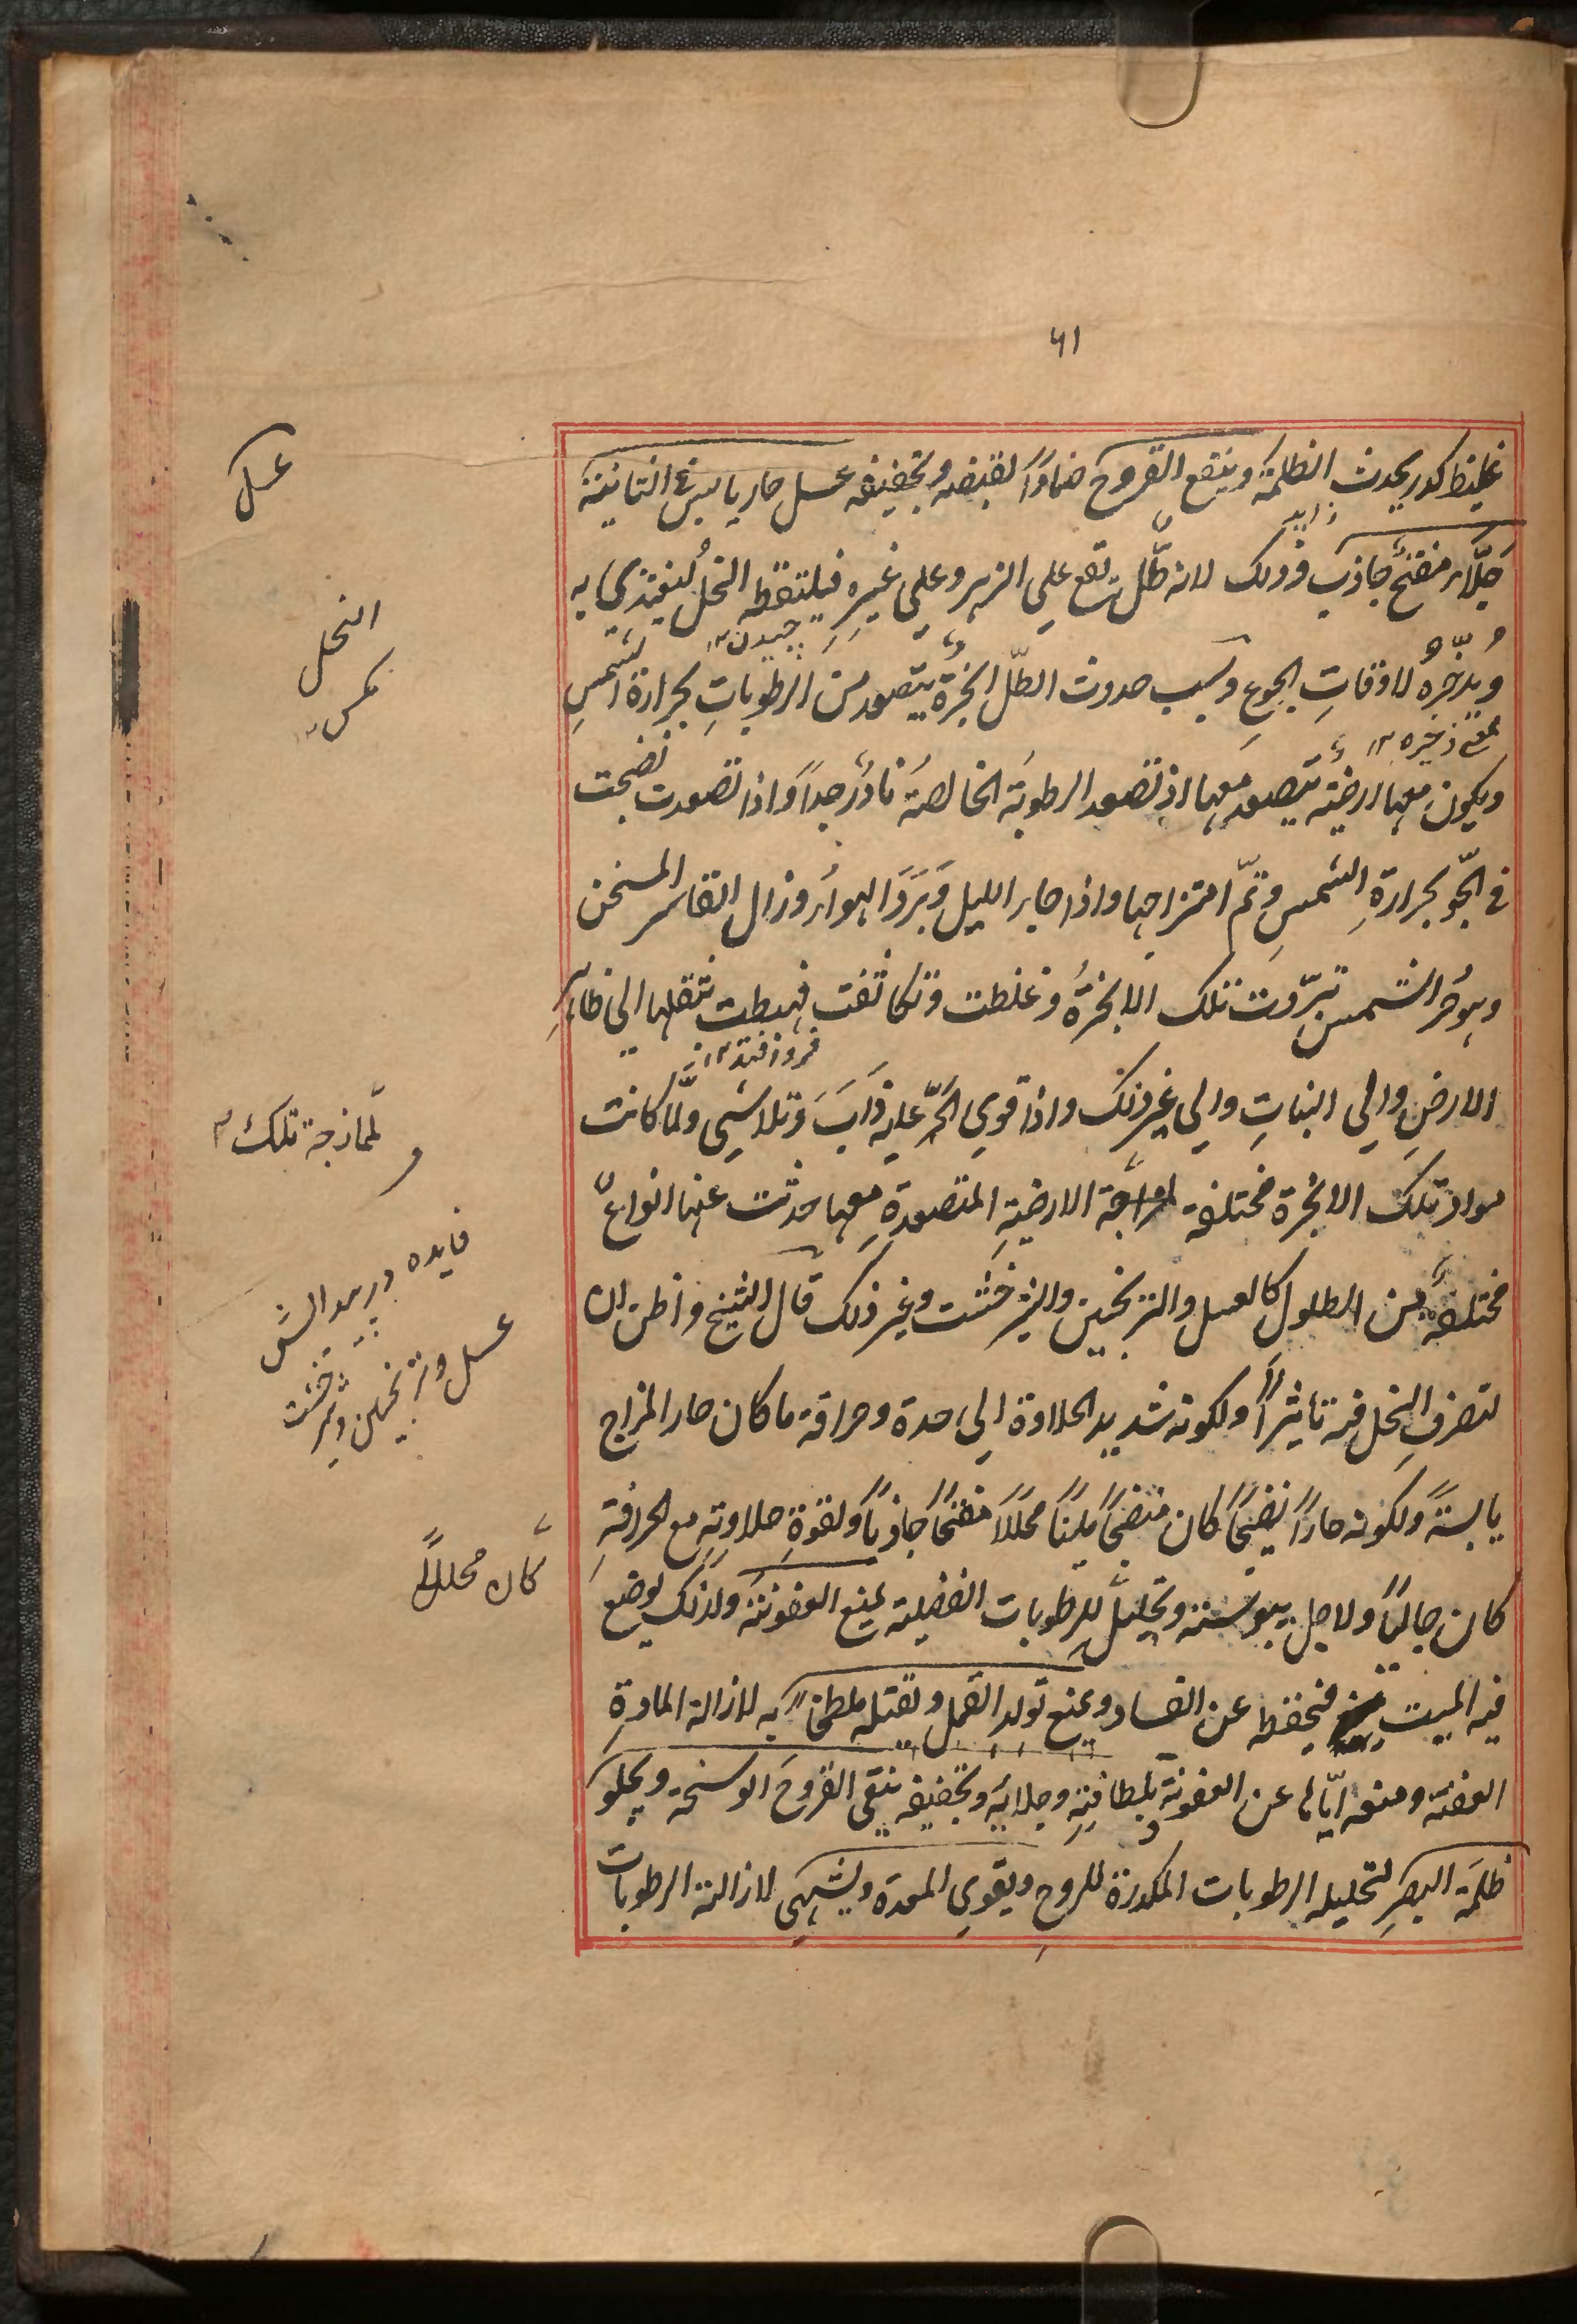 ٦١
غليظ كدر يحدث الظلمة وينفع القروح ضماداً لقبضه وتجفيفه عسل حار يابس في الثانية
جلّاء مفتح جاذب وذلك لانه طلّ تقع علي الزهر وعلي غيره فيلتقطه النحل ليغتذي به
ويدّخره لاوقات الجوع وسبب حدوث الطلّ ابخرة يتصعد من الرطوبات بحرارة الشمس
ويكون معها ارضية يتصعد معها اذ تصعد الرطوبة الخالصة نادر جداً واذا تصعدت نضجت
في الجو بحرارة الشمس وتمّ امتزاجها واذا جاء الليل وبرد الهواء وزال القاسر المسخن
وهو حر الشمس تبرّدت تلك الابخرة وغلظت وتكاثفت فهبطت بثقلها الي ظاهر
الارض والي النبات والي غير ذلك واذا قوي الحرّ عليه ذاب وتلاشي ولمّا كانت
مواد تلك الابخرة مختلفة الارضية المتصعدة معها حدثت عنها انواع
مختلفة من الطلول كالعسل والترنجبين والشيرخشت وغير ذلك قال الشيخ واظن ان
لتصرف النحل فيه تاثيراً ولكونه شديد الحلاوة الي حدة وحرافة ما كان حار المزاج
يابسة ولكونه حاراً نضيجاً كان منضجاً مليناً محللاً مفتحاً جاذباً ولقوة حلاوته مع الحرافة
كان جالياً ولاجل يبوسته وتحليله للرطوبات الفضلية يمنع العفونة ولذلك يوضع
فيه الميت فيحفظه عن الفساد ويمنع تولد القمل وتقتله ملطخاً به لازالة المادة
العفنة ومنعه ايّاها عن العفونة بلطافته وجلائه وتجفيفه ينقي القروح الوسخة ويجلو
ظلمة البصر لتحليله الرطوبات المكدرة للروح ويقوي المعدة ويشهي لازالته الرطوبات
زايد
چيدن ١٢
بمعنے ذخيره ١٢
فرو افتد ١٢
عسل
النحل
مكس ١٢
لممازجة تلك
و
فايده در پيدايش
عسل وترنجبين وشيرخشت
كان محللاً